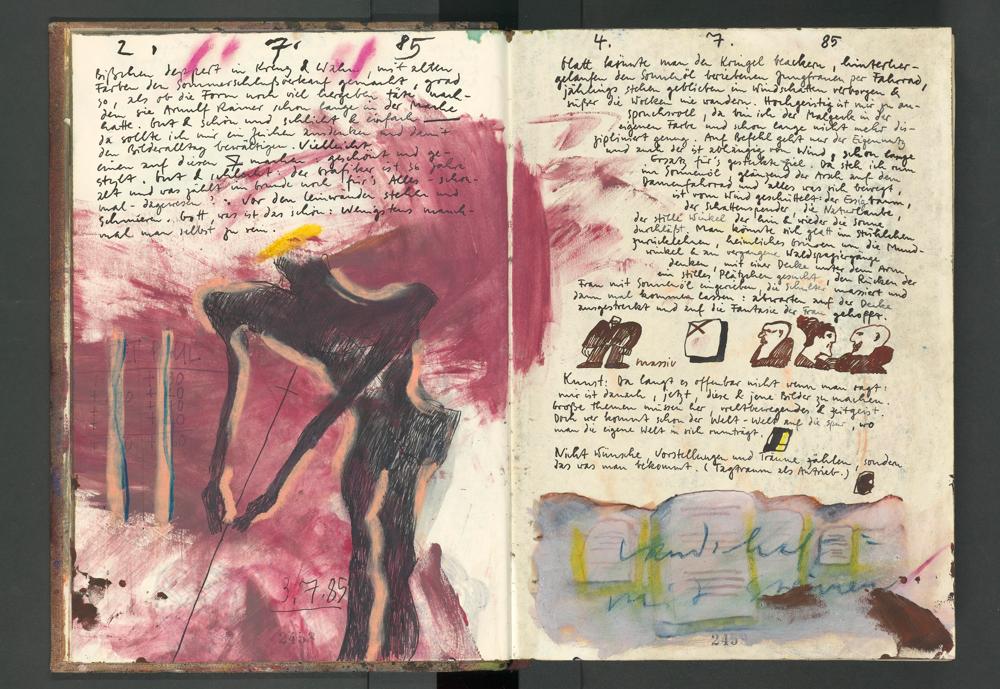 2. 7. 85
Bißchen deppert in Krieg & Wahn, mit alten
Farben den Sommerschlußverkauf gemacht, grad
so, als ob die Form noch viel hergeben täte, nach-
dem sie Arnulf Rainer schon lange in der Tasche
hatte. Gut & schön und schlicht & einfach
da sollte ich mir ein Zeichen ausdenken und damit
den Bilderalltag bewältigen. Vielleicht
einen auf diesen machen, geschönt und ge-
stylt. Gut & schlecht. Der Grafiker ist 36 Jahre
alt und was zählt im Grunde noch für's Alles-schon-
mal-dagewesen? Vor den Leinwänden stehen und
schmieren. Gott, was ist das schön: Wenigstens manch-
mal man selbst zu sein.
3. 7. 85
4. 7. 85
glatt könnte man den Kringel beackern, hinterher-
gelaufen den Sonnenöl beriebenen Jungfrauen per Fahrrad,
jählings stehen geblieben im Windschatten verborgen &
außer die Wolken nie wandern. Hochgeistig ist mir zu an-
spruchsvoll, da bin ich der Malgeck in der
eigenen Farbe und schon lange nicht mehr dis-
zipliniert genug. Auf Befehl geht nur der Eigennutz
und auch der ist abhängig von Wind & schon lange
Ersatz für's gesteckte Ziel. Da steh ich nun
im Sonnenöl, glänzend der Arsch auf dem
Damenfahrrad und alles was sich bewegt,
ist vom Wind geschüttelt: der Essigbaum,
der Schattenspender, die Naturlaube,
der stille Winkel der hin & wieder die Sonne
durchläßt. Man könnte sich glatt im Stühlchen
zurücklehnen, heimliches Grinsen um die Mund-
winkel & an vergangene Waldspaziergänge
denken, mit einer Decke unter dem Arm,
ein stilles Plätzchen gesucht, den Rücken der
Frau mit Sonnenöl eingerieben, die Schulter massiert und
dann mal kommen lassen: abwarten auf der Decke
ausgestreckt und auf die Fantasie der Frau gehofft.
massiv
Kunst: Da langt es offenbar nicht wenn man sagt:
mir ist danach, jetzt, diese & jene Bilder zu machen.
Große Themen müssen her, weltbewegendes & Zeitgeist.
Doch wer kommt schon der Welt-Welt auf die Spur, wo
man die eigene Welt in sich rumträgt.
Nicht Wünsche, Vorstellungen und Träume zählen, sondern
das was man bekommt. (Tagtraum als Antrieb.)
Landschaft-
245